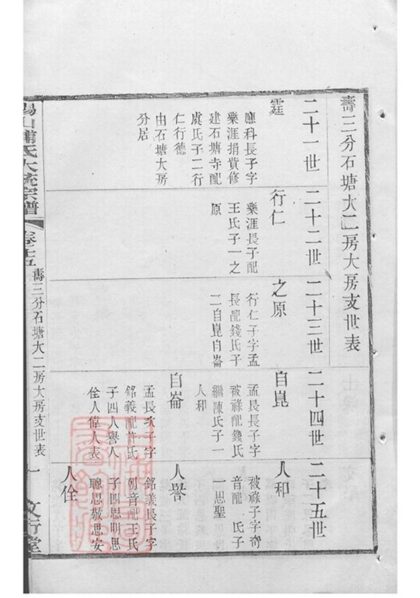 壽三分石塘大二房大房支世表
二十一世
霆
應科長子字
樂涯捐貲修
建石塘寺配
虞氏子二行
仁行德
由石塘大房
分居
二十二世
行仁
樂涯長子配
王氏子一之
原
二十三世
之原
行仁子字孟
長配錢氏子
二自崑自崙
二十四世
自崑
孟長長子字
被祿配錢氏
繼陳氏子一
人和
自崙
孟長次子字
銘義配許氏
子四人譽人
佺人倚人表
二十五世
人和
被祿子字奇
音配 氏子
一思聖
人譽
銘義長子字
朝音配王氏
子四思明思
聰思敬思安
人佺
大統宗譜
壽三分石塘大二房大房支世表
一
文行堂